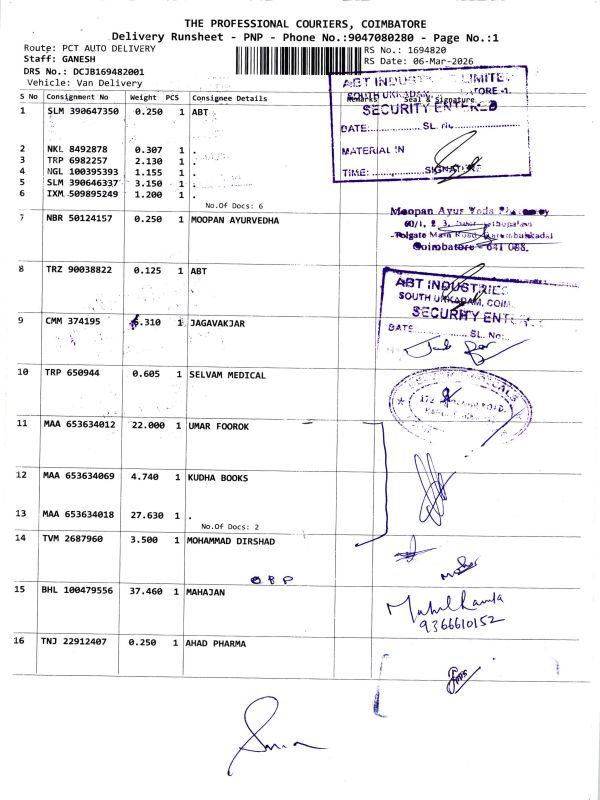 THE PROFESSIONAL COURIERS, COIMBATORE
Delivery Runsheet - PNP - Phone No.:9047080280 - Page No.:1
Route: PCT AUTO DELIVERY
RS No.: 1694820
Staff: GANESH
RS Date: 06-Mar-2026
DRS No.: DCJB169482001
Vehicle: Van Delivery
S No Consignment No Weight PCS Consignee Details Remarks Seal & Signature
1 SLM 390647350 0.250 1 ABT
2 NKL 8492878 0.307 1 .
3 TRP 6982257 2.130 1 .
4 NGL 100395393 1.155 1 .
5 SLM 390646337 3.150 1 .
6 IXM 509895249 1.200 1 .
No.Of Docs: 6
ABT INDUSTRIES LIMITED
SOUTH UKKADAM,
SECURITY ENTERED
DATE: SL. No.
MATERIAL IN
TIME: SIGNATURE
7 NBR 50124157 0.250 1 MOOPAN AYURVEDHA
Moopan Ayur Veda Pharmacy
60/1, 2 3,
Tolgate Main Road,
Coimbatore - 641 008.
8 TRZ 90038822 0.125 1 ABT
ABT INDUSTRIES
SOUTH UKKADAM, COIM
SECURITY ENTERED
DATE SL. No:
9 CMM 374195 6.310 1 JAGAVAKJAR
10 TRP 650944 0.605 1 SELVAM MEDICAL
11 MAA 653634012 22.000 1 UMAR FOOROK
12 MAA 653634069 4.740 1 KUDHA BOOKS
13 MAA 653634018 27.630 1 .
No.Of Docs: 2
14 TVM 2687960 3.500 1 MOHAMMAD DIRSHAD
OBP
15 BHL 100479556 37.460 1 MAHAJAN
9366610152
16 TNJ 22912407 0.250 1 AHAD PHARMA